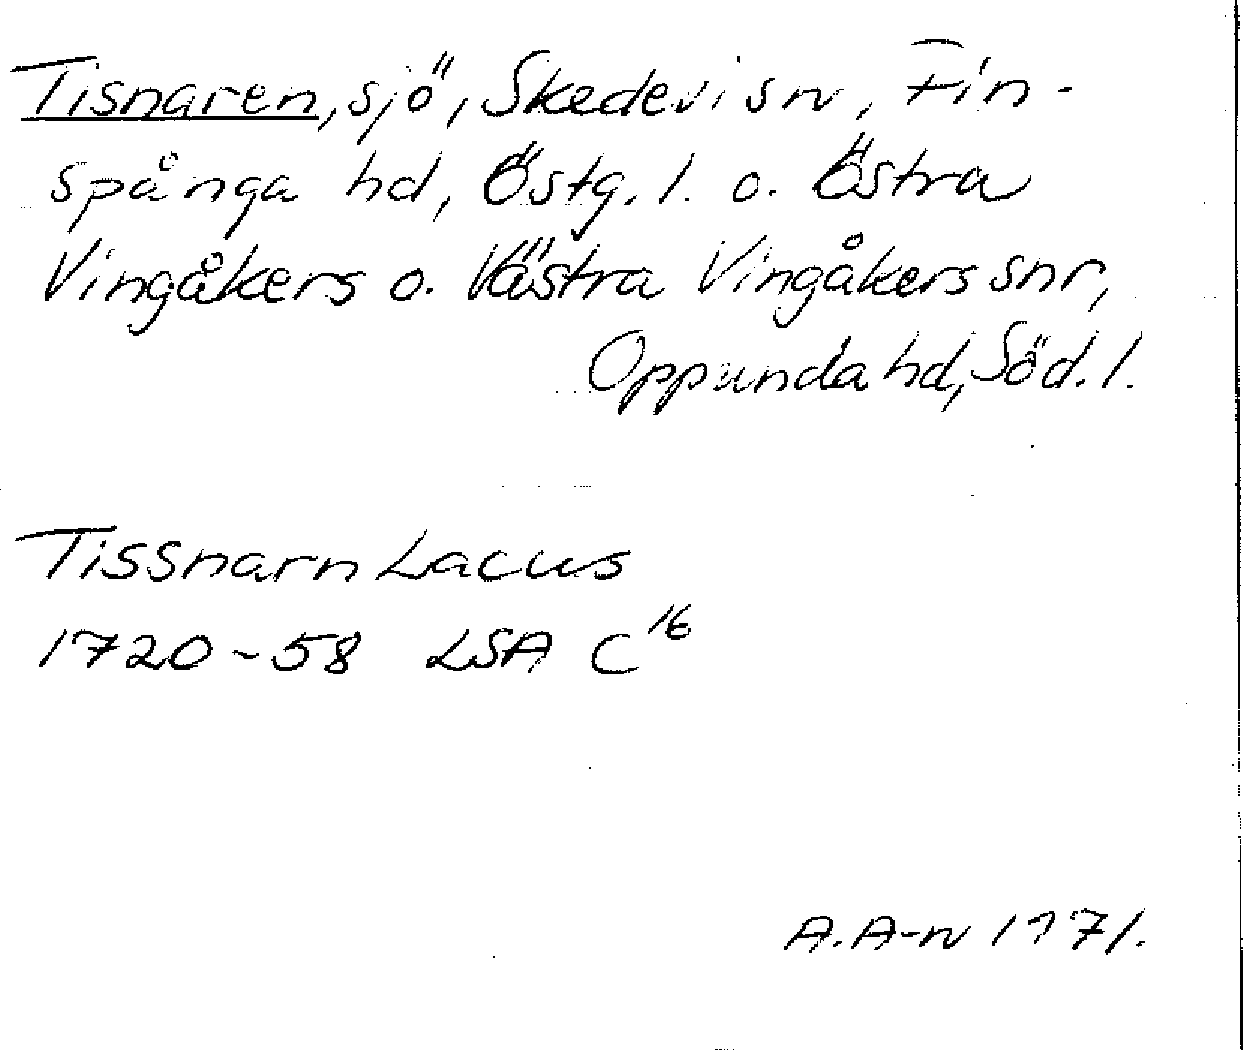 Tisnaren, sjö, Skedevi sn, Fin-
spånga hd, Östg. l. o. Östra
Vingåkers o. Västra Vingåkers snr,
Oppunda hd, Söd. l.
Tissnarn Lacus
1720-58 LSA C 16
A. A-n 1971.